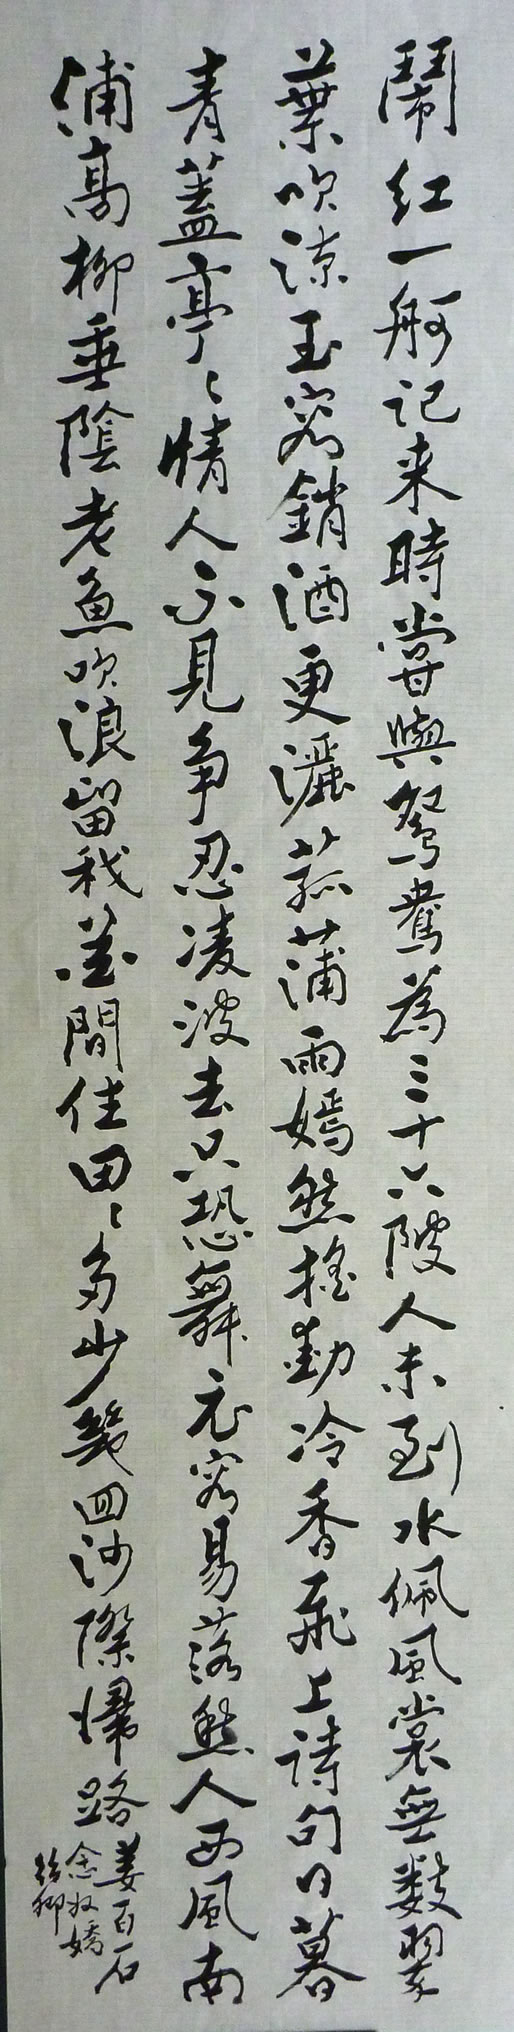 鬧紅一舸記来時嘗與鴛鴦為三十六陂人未到水佩風裳無數翠
葉吹涼玉容銷酒更灑菰蒲雨嫣然搖動冷香飛上詩句日暮
青蓋亭〻情人不見爭忍凌波去只恐舞衣容易落愁人西風南
浦高柳垂陰老魚吹浪留我花間住田〻多少幾回沙際歸路
姜白石
念奴嬌